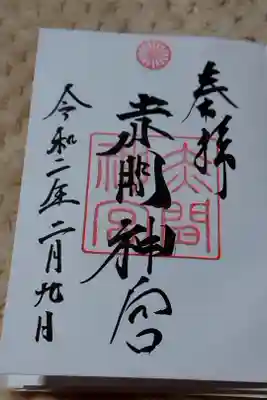 奉拝
赤間神宮
令和二年二月九日
赤間
神宮